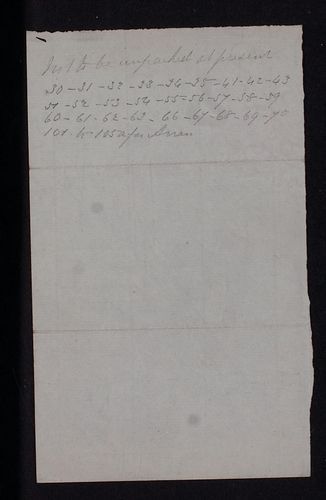 Not to be unpacked at present
30-31-32-33-34-35-41-42-43
51-52-53-54-55-56-57-58-59
60-61-62-63-66-67-68-69-70
101 to 105 after Arran